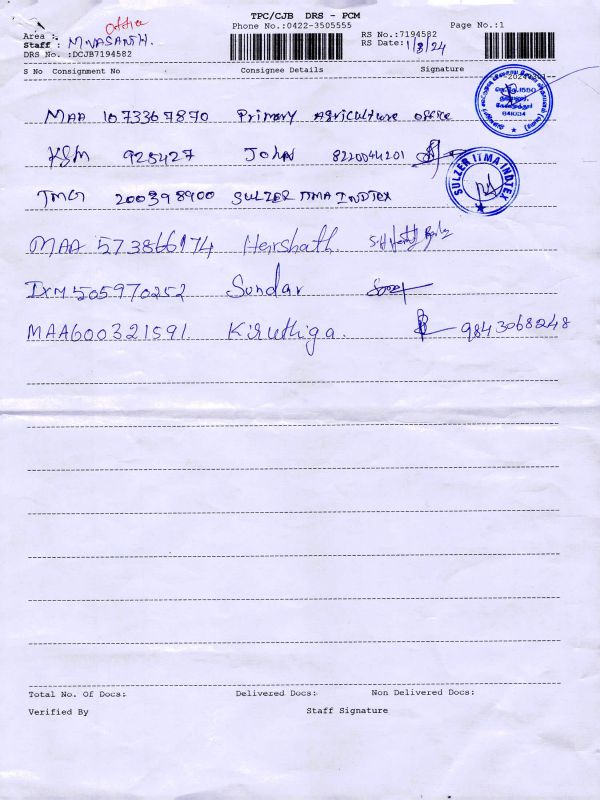 TPC/CJB DRS - PCM
Office
Phone No.:0422-3505555 Page No.:1
Area :
RS No.:7194582
Staff : M.VASANTH.
RS Date: 1/8/24
DRS No. :DCJB7194582
S No Consignment No Consignee Details Signature
MAA 1073367870 Primary Agriculture office
641034
KSM 925427 JOHN 8220044201
SULZER ITMA-INDTEX
TMG 200398900 SULZER ITMA INDTEX
MAA 573866174 Harshath.
IXM 505970252 Sundar
MAA600321591. Kiruthiga. 9843068248
Total No. Of Docs: Delivered Docs: Non Delivered Docs:
Verified By Staff Signature